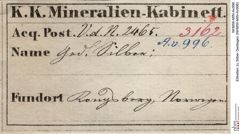 K. K. Mineralien-Kabinett.
Acq. Post. V.d.N. 2465. 3162
A.v. 996.
Name Ged. Silber.
Fundort Kongsberg, Norwegen